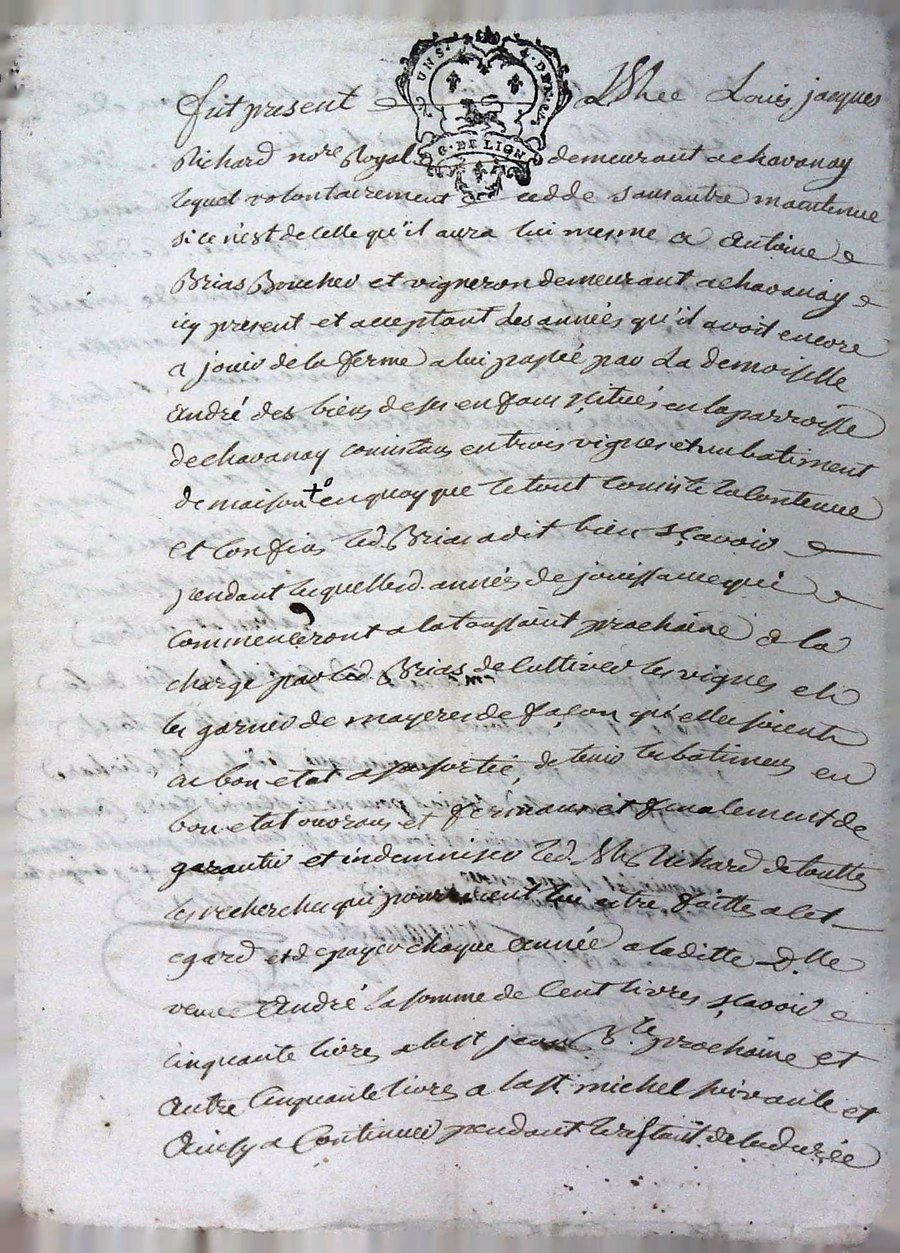 UN S. 4. DEN.
G. DE LION
fut present Mtre Louis jacques
Richard nore Royal demeurant a chavanay
lequel volontairement cedde sans autre maintenue
si ce n'est de celle qu'il aura lui mesme a Antoine
Brias Boucher et vigneron demeurant a chavanay
icy present et acceptant des années qu'il avoit encore
a jouir de la ferme a lui passée par La demoiselle
André des biens de ses enfans scitués en la parroisse
de chavanay consistans en trois vignes et un batiment
de maison + en quoy que le tout consiste la contenue
et confins led. Brias a dit bien sçavoir
pendant lesquelles d. années de jouissance qui
commenceront a la toussaint prochaine a la
charge par led. Brias de cultiver les vignes et
les garnir de mayeres de façon qu'elles soient
au bon etat a sa sortie, de tenir les batimens en
bon etat ouvrans et fermans et finalement de
garantir et indemniser led. Me Richard de touttes
les recherches qui pourroient lui etre faittes a cet
egard et de payer chaque année a laditte D.lle
veuve André la somme de cent livres sçavoir
cinquante livres a la st jean B.te prochaine et
autre cinquante livres a la st. michel suivante et
Ainsy a Continuer pendant le restant de la durée